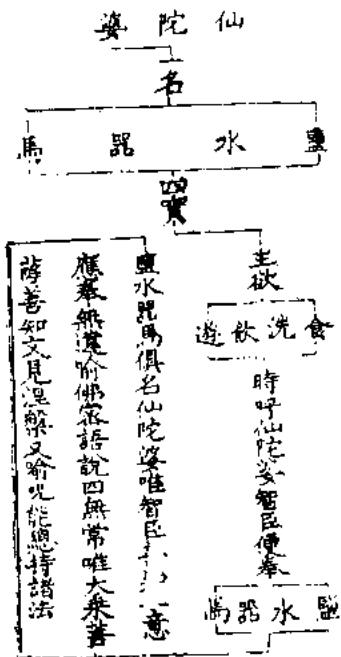 仙陀婆
一名
鹽水器馬
四實
王欲
食洗飲遊
時呼仙陀婆智臣便奉
鹽水器馬
鹽水器馬俱名仙陀婆唯智臣意
應奉無違喻佛密語說四無常唯大乘菩
薩善知文見涅槃又喻呪能總持諸法